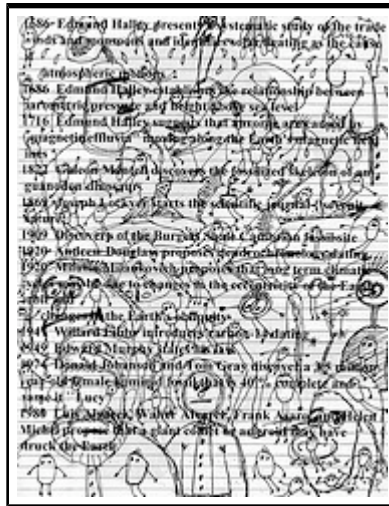 1686 Edmund Halley presents a systematic study of the trade
winds and monsoons and identifies solar heating as the cause
atmospheric motions :
1686 Edmund Halley establishes the relationship between
barometric pressure and height above sea level
1716 Edmund Halley suggests that aurorae are caused by
"magnetic effluvia" moving along the Earth's magnetic field
lines
1822 Gideon Mantell discovers the fossilized skeleton of an
iguanodon dinosaur
1869 Joseph Lockyer starts the scientific journal
Nature
1909 Discovery of the Burgess Shale Cambrian
1920 Andrew Douglass proposes dendrochronology dating
1920 Milutin Milankovich proposes that long term climatic
cycles may be due to changes in the eccentricity of the Earth
orbit and
changes in the Earth's obliquity
1947 Willard Libby introduces carbon dating
1949 Edward Murphy states his law
1974 Donald Johanson and Tom Gray discover a 3.5 million
year old female hominid fossil that is 40% complete and
name it "Lucy"
1980 Luis Alvarez, Walter Alvarez, Frank Asaro, and Helen
Michel propose that a giant comet or asteroid may have
struck the Earth